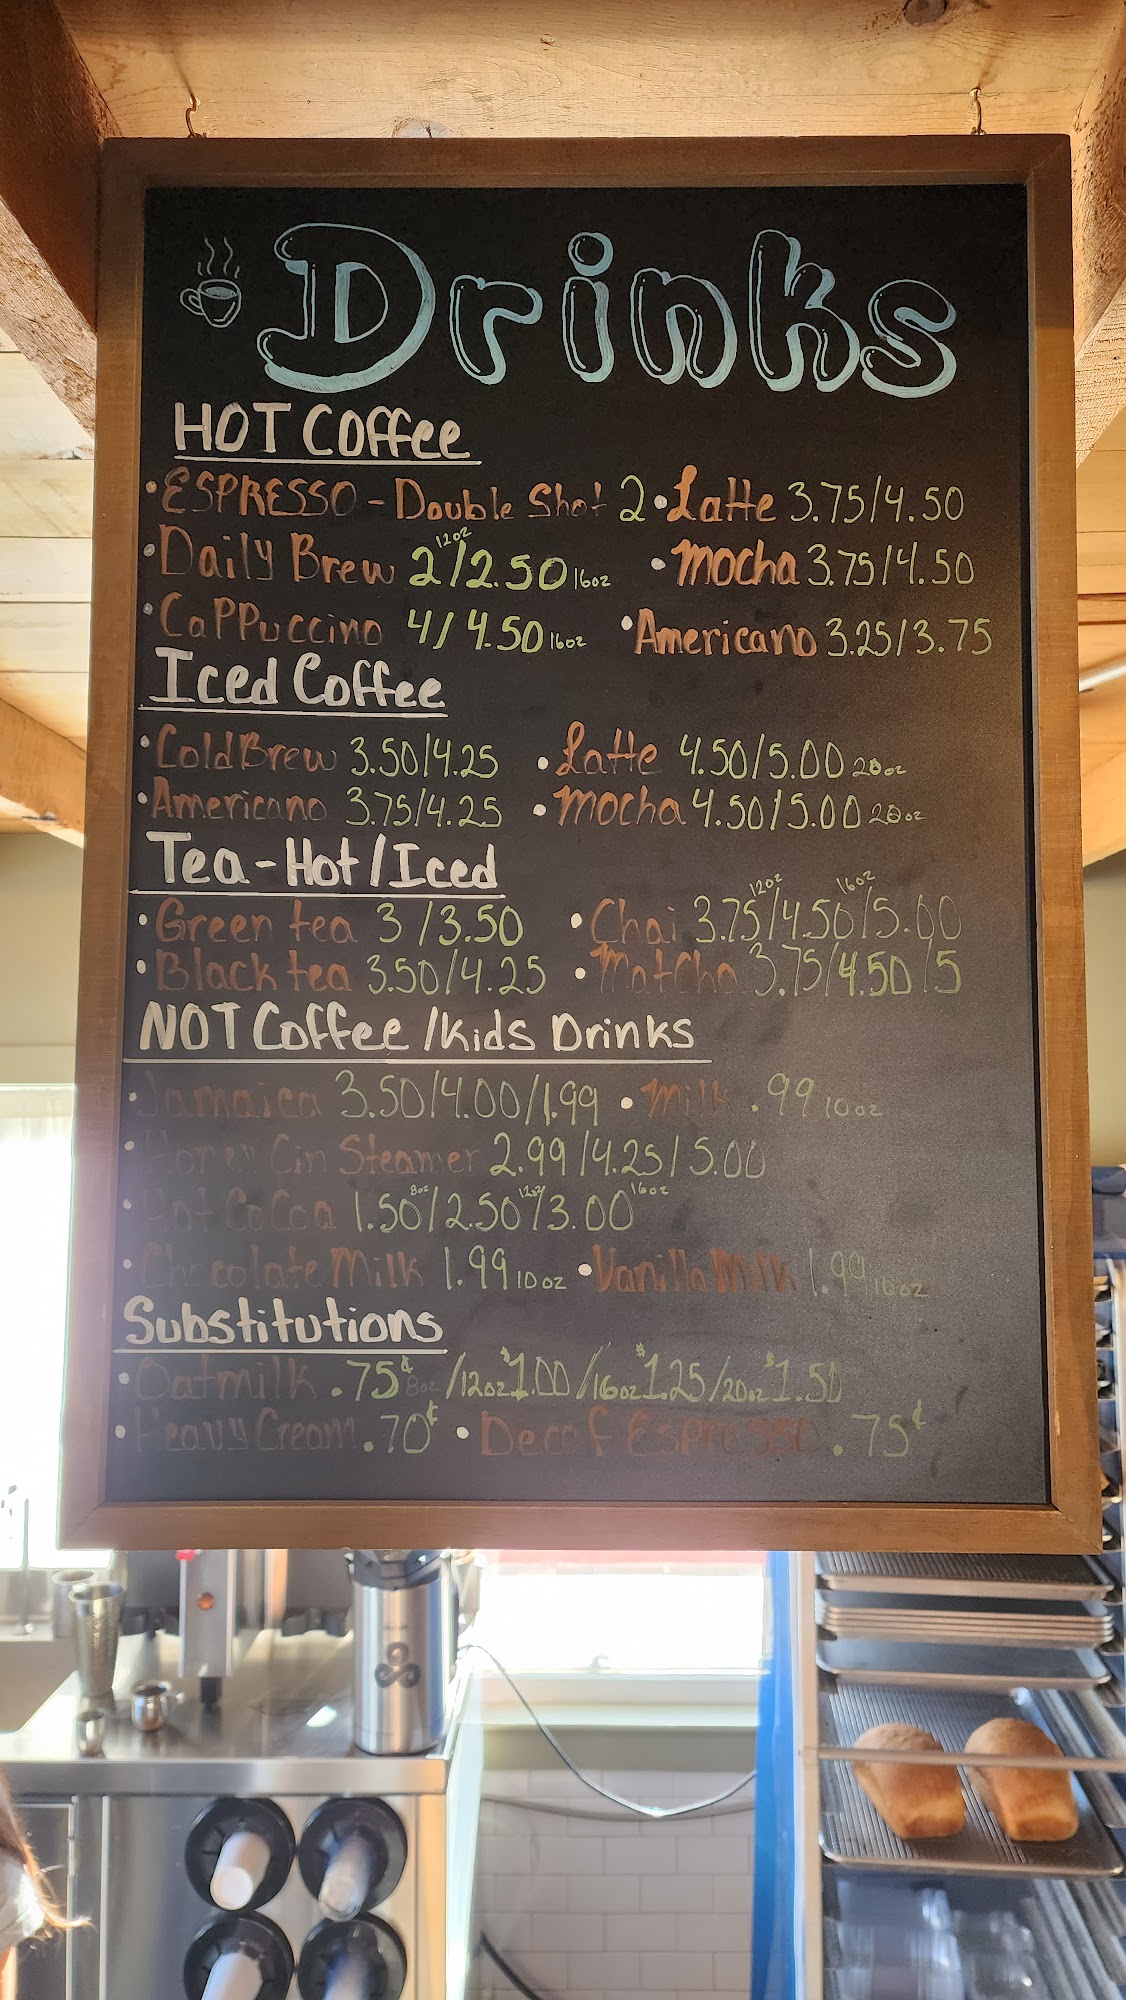 Drinks
HOT Coffee
• ESPRESSO - Double Shot 2 • Latte 3.75/4.50
• Daily Brew 2 12oz/2.50 16oz • Mocha 3.75/4.50
• Cappuccino 4/4.50 16oz • Americano 3.25/3.75
Iced Coffee
• Cold Brew 3.50/4.25 • Latte 4.50/5.00 20oz
• Americano 3.75/4.25 • Mocha 4.50/5.00 20oz
Tea - Hot/Iced
• Green tea 3/3.50 • Chai 3.75 12oz/4.50 16oz/5.00
• Black tea 3.50/4.25 • Matcha 3.75/4.50/5
NOT Coffee/Kids Drinks
• Jamaica 3.50/4.00/1.99 • Milk .99 10oz
• Honey Cin Steamer 2.99/4.25/5.00
• Hot Cocoa 1.50 8oz/2.50 12oz/3.00 16oz
• Chocolate Milk 1.99 10oz • Vanilla Milk 1.99 10oz
Substitutions
• Oatmilk .75¢ 8oz/12oz $1.00/16oz $1.25/20oz $1.50
• Heavy Cream .70¢ • Decaf Espresso .75¢